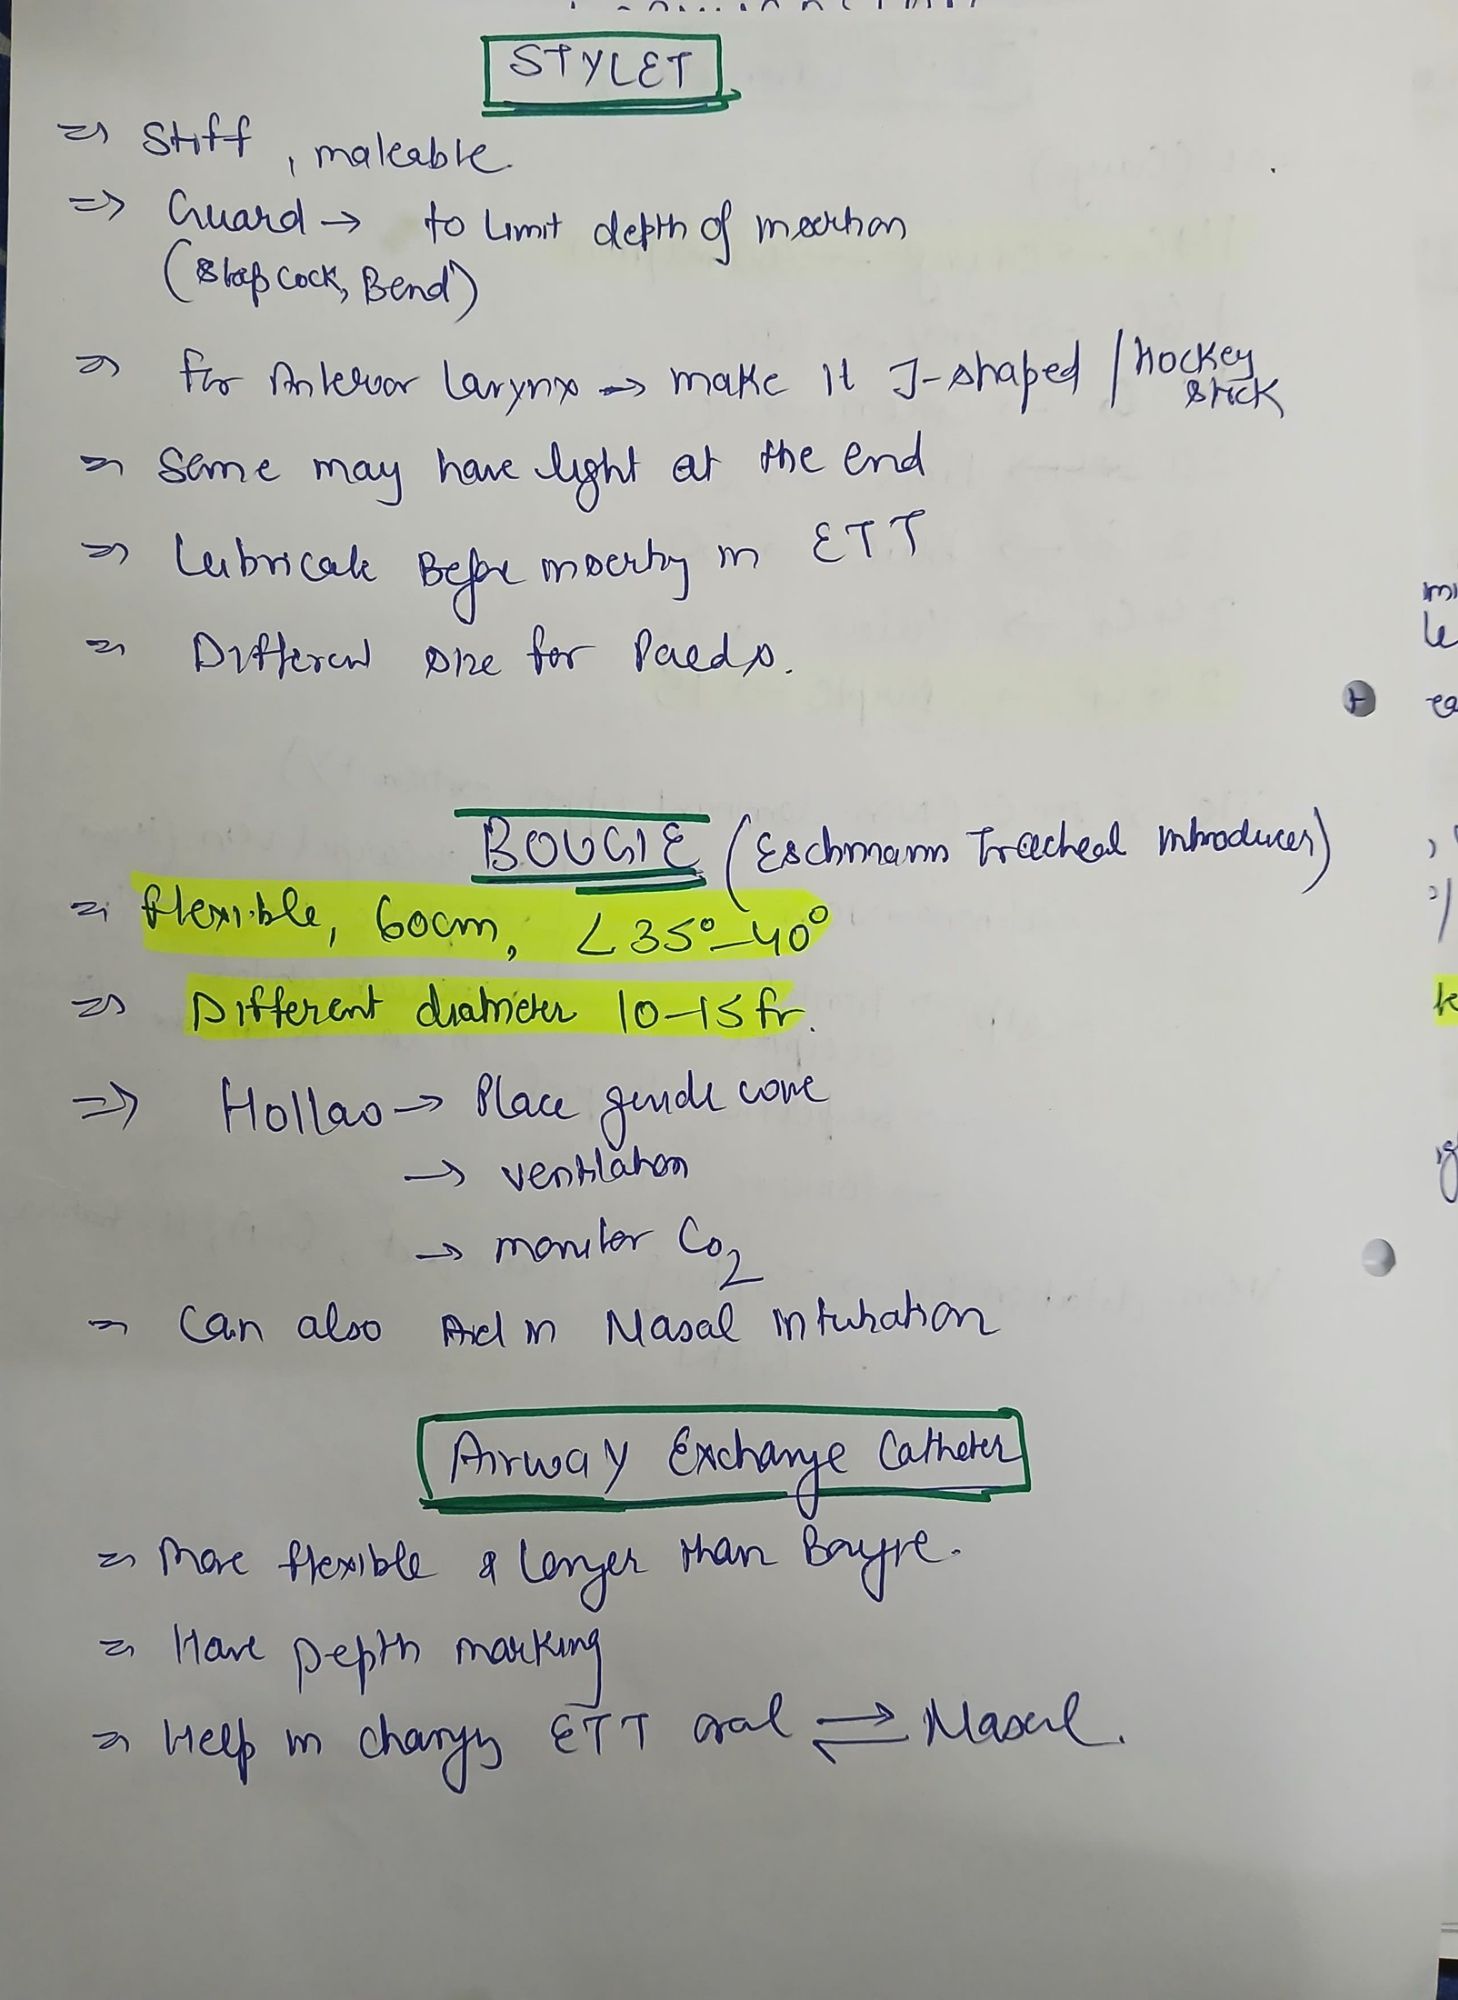 STYLET
⇒ Stiff, maleable
⇒ Guard → to limit depth of insertion
(Stop cock, Bend)
⇒ for Anterior larynx → make it J-shaped / hockey
stick
⇒ Some may have light at the end
⇒ Lubricate Before inserting in ETT
⇒ Different size for Paeds.
BOUGIE (Eschmann Tracheal Introducer)
⇒ flexible, 60cm, ∠35°-40°
⇒ Different diameter 10-15 fr.
⇒ Hollao → Place guide wire
→ ventilation
→ monitor Co₂
⇒ Can also Aid in Nasal intubation
Airway Exchange Catheter
⇒ More flexible & longer than Bougie.
⇒ Have Depth marking
⇒ Help in changing ETT oral ⇌ Nasal.